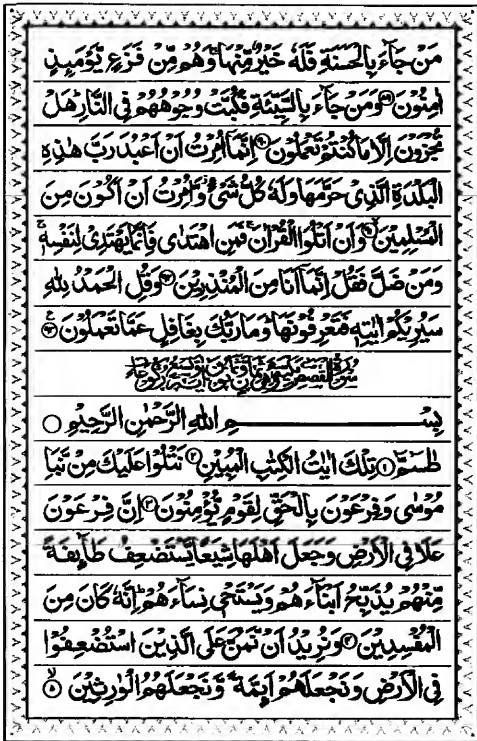 مَنْ جَآءَ بِالْحَسَنَةِ فَلَهٗ خَيْرٌ مِّنْهَا ۚ وَهُمْ مِّنْ فَزَعٍ يَّوْمَىِٕذٍ
اٰمِنُوْنَ ۝۸۹ وَمَنْ جَآءَ بِالسَّيِّئَةِ فَكُبَّتْ وُجُوْهُهُمْ فِى النَّارِ ؕ هَلْ
تُجْزَوْنَ اِلَّا مَا كُنْتُمْ تَعْمَلُوْنَ ۝۹۰ اِنَّمَاۤ اُمِرْتُ اَنْ اَعْبُدَ رَبَّ هٰذِهِ
الْبَلْدَةِ الَّذِىْ حَرَّمَهَا وَلَهٗ كُلُّ شَىْءٍ وَّاُمِرْتُ اَنْ اَكُوْنَ مِنَ
الْمُسْلِمِيْنَ ۝۹۱ وَاَنْ اَتْلُوَا الْقُرْاٰنَ ۚ فَمَنِ اهْتَدٰى فَاِنَّمَا يَهْتَدِىْ لِنَفْسِهٖ ۚ
وَمَنْ ضَلَّ فَقُلْ اِنَّمَاۤ اَنَا مِنَ الْمُنْذِرِيْنَ ۝۹۲ وَقُلِ الْحَمْدُ لِلّٰهِ
سَيُرِيْكُمْ اٰيٰتِهٖ فَتَعْرِفُوْنَهَا ؕ وَمَا رَبُّكَ بِغَافِلٍ عَمَّا تَعْمَلُوْنَ ۝۹۳
سُوْرَةُ الْقَصَصِ مَكِّيَّةٌ وَّهِىَ
بِسْمِ اللّٰهِ الرَّحْمٰنِ الرَّحِيْمِ ۝
طٰسٓمّٓ ۝۱ تِلْكَ اٰيٰتُ الْكِتٰبِ الْمُبِيْنِ ۝۲ نَتْلُوْا عَلَيْكَ مِنْ نَّبَاِ
مُوْسٰى وَفِرْعَوْنَ بِالْحَقِّ لِقَوْمٍ يُّؤْمِنُوْنَ ۝۳ اِنَّ فِرْعَوْنَ
عَلَا فِى الْاَرْضِ وَجَعَلَ اَهْلَهَا شِيَعًا يَّسْتَضْعِفُ طَآىِٕفَةً
مِّنْهُمْ يُذَبِّحُ اَبْنَآءَهُمْ وَيَسْتَحْىٖ نِسَآءَهُمْ ؕ اِنَّهٗ كَانَ مِنَ
الْمُفْسِدِيْنَ ۝۴ وَنُرِيْدُ اَنْ نَّمُنَّ عَلَى الَّذِيْنَ اسْتُضْعِفُوْا
فِى الْاَرْضِ وَنَجْعَلَهُمْ اَىِٕمَّةً وَّنَجْعَلَهُمُ الْوٰرِثِيْنَ ۝۵